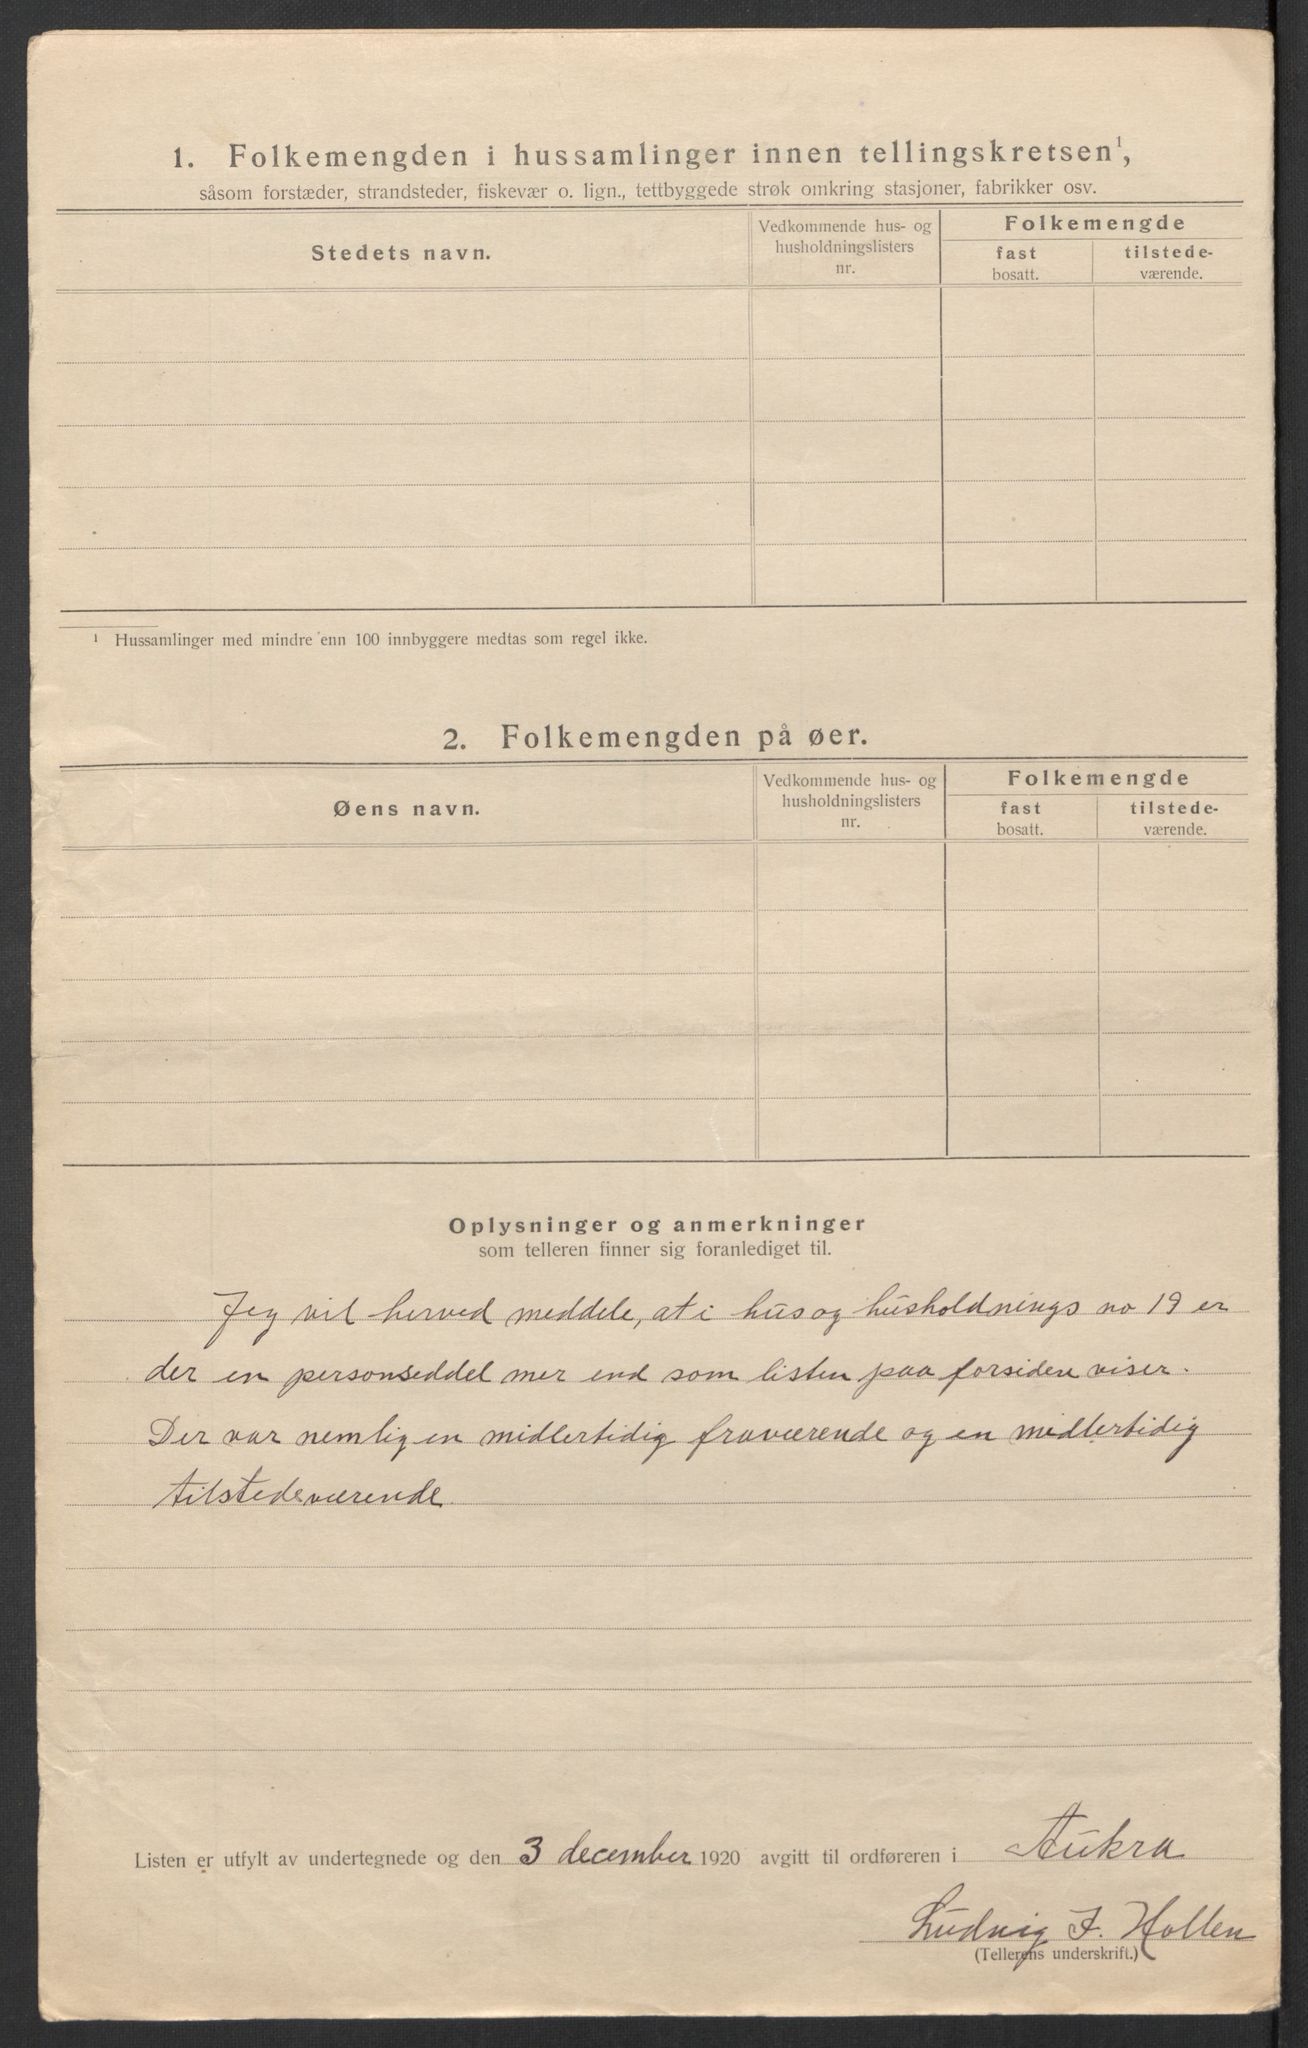 1. Folkemengden i hussamlinger innen tellingskretsen¹,
såsom forstæder, strandsteder, fiskevær o. lign., tettbyggede strøk omkring stasjoner, fabrikker osv.
Stedets navn.
Vedkommende hus- og
husholdningslisters
nr.
Folkemengde
fast
bosatt.
tilstede-
værende.
¹ Hussamlinger med mindre enn 100 innbyggere medtas som regel ikke.
2. Folkemengden på øer.
Øens navn.
Vedkommende hus- og
husholdningslisters
nr.
Folkemengde
fast
bosatt.
tilstede-
værende.
Oplysninger og anmerkninger
som telleren finner sig foranlediget til.
Jeg vil herved meddele, at i hus og husholdnings no 19 er
der en personseddel mer end som listen paa forsiden viser.
Der var nemlig en midlertidig fraværende og en midlertidig
tilstedeværende.
Listen er utfylt av undertegnede og den 3 december 1920 avgitt til ordføreren i Aukra
Ludvig J. Hollen
(Tellerens underskrift.)